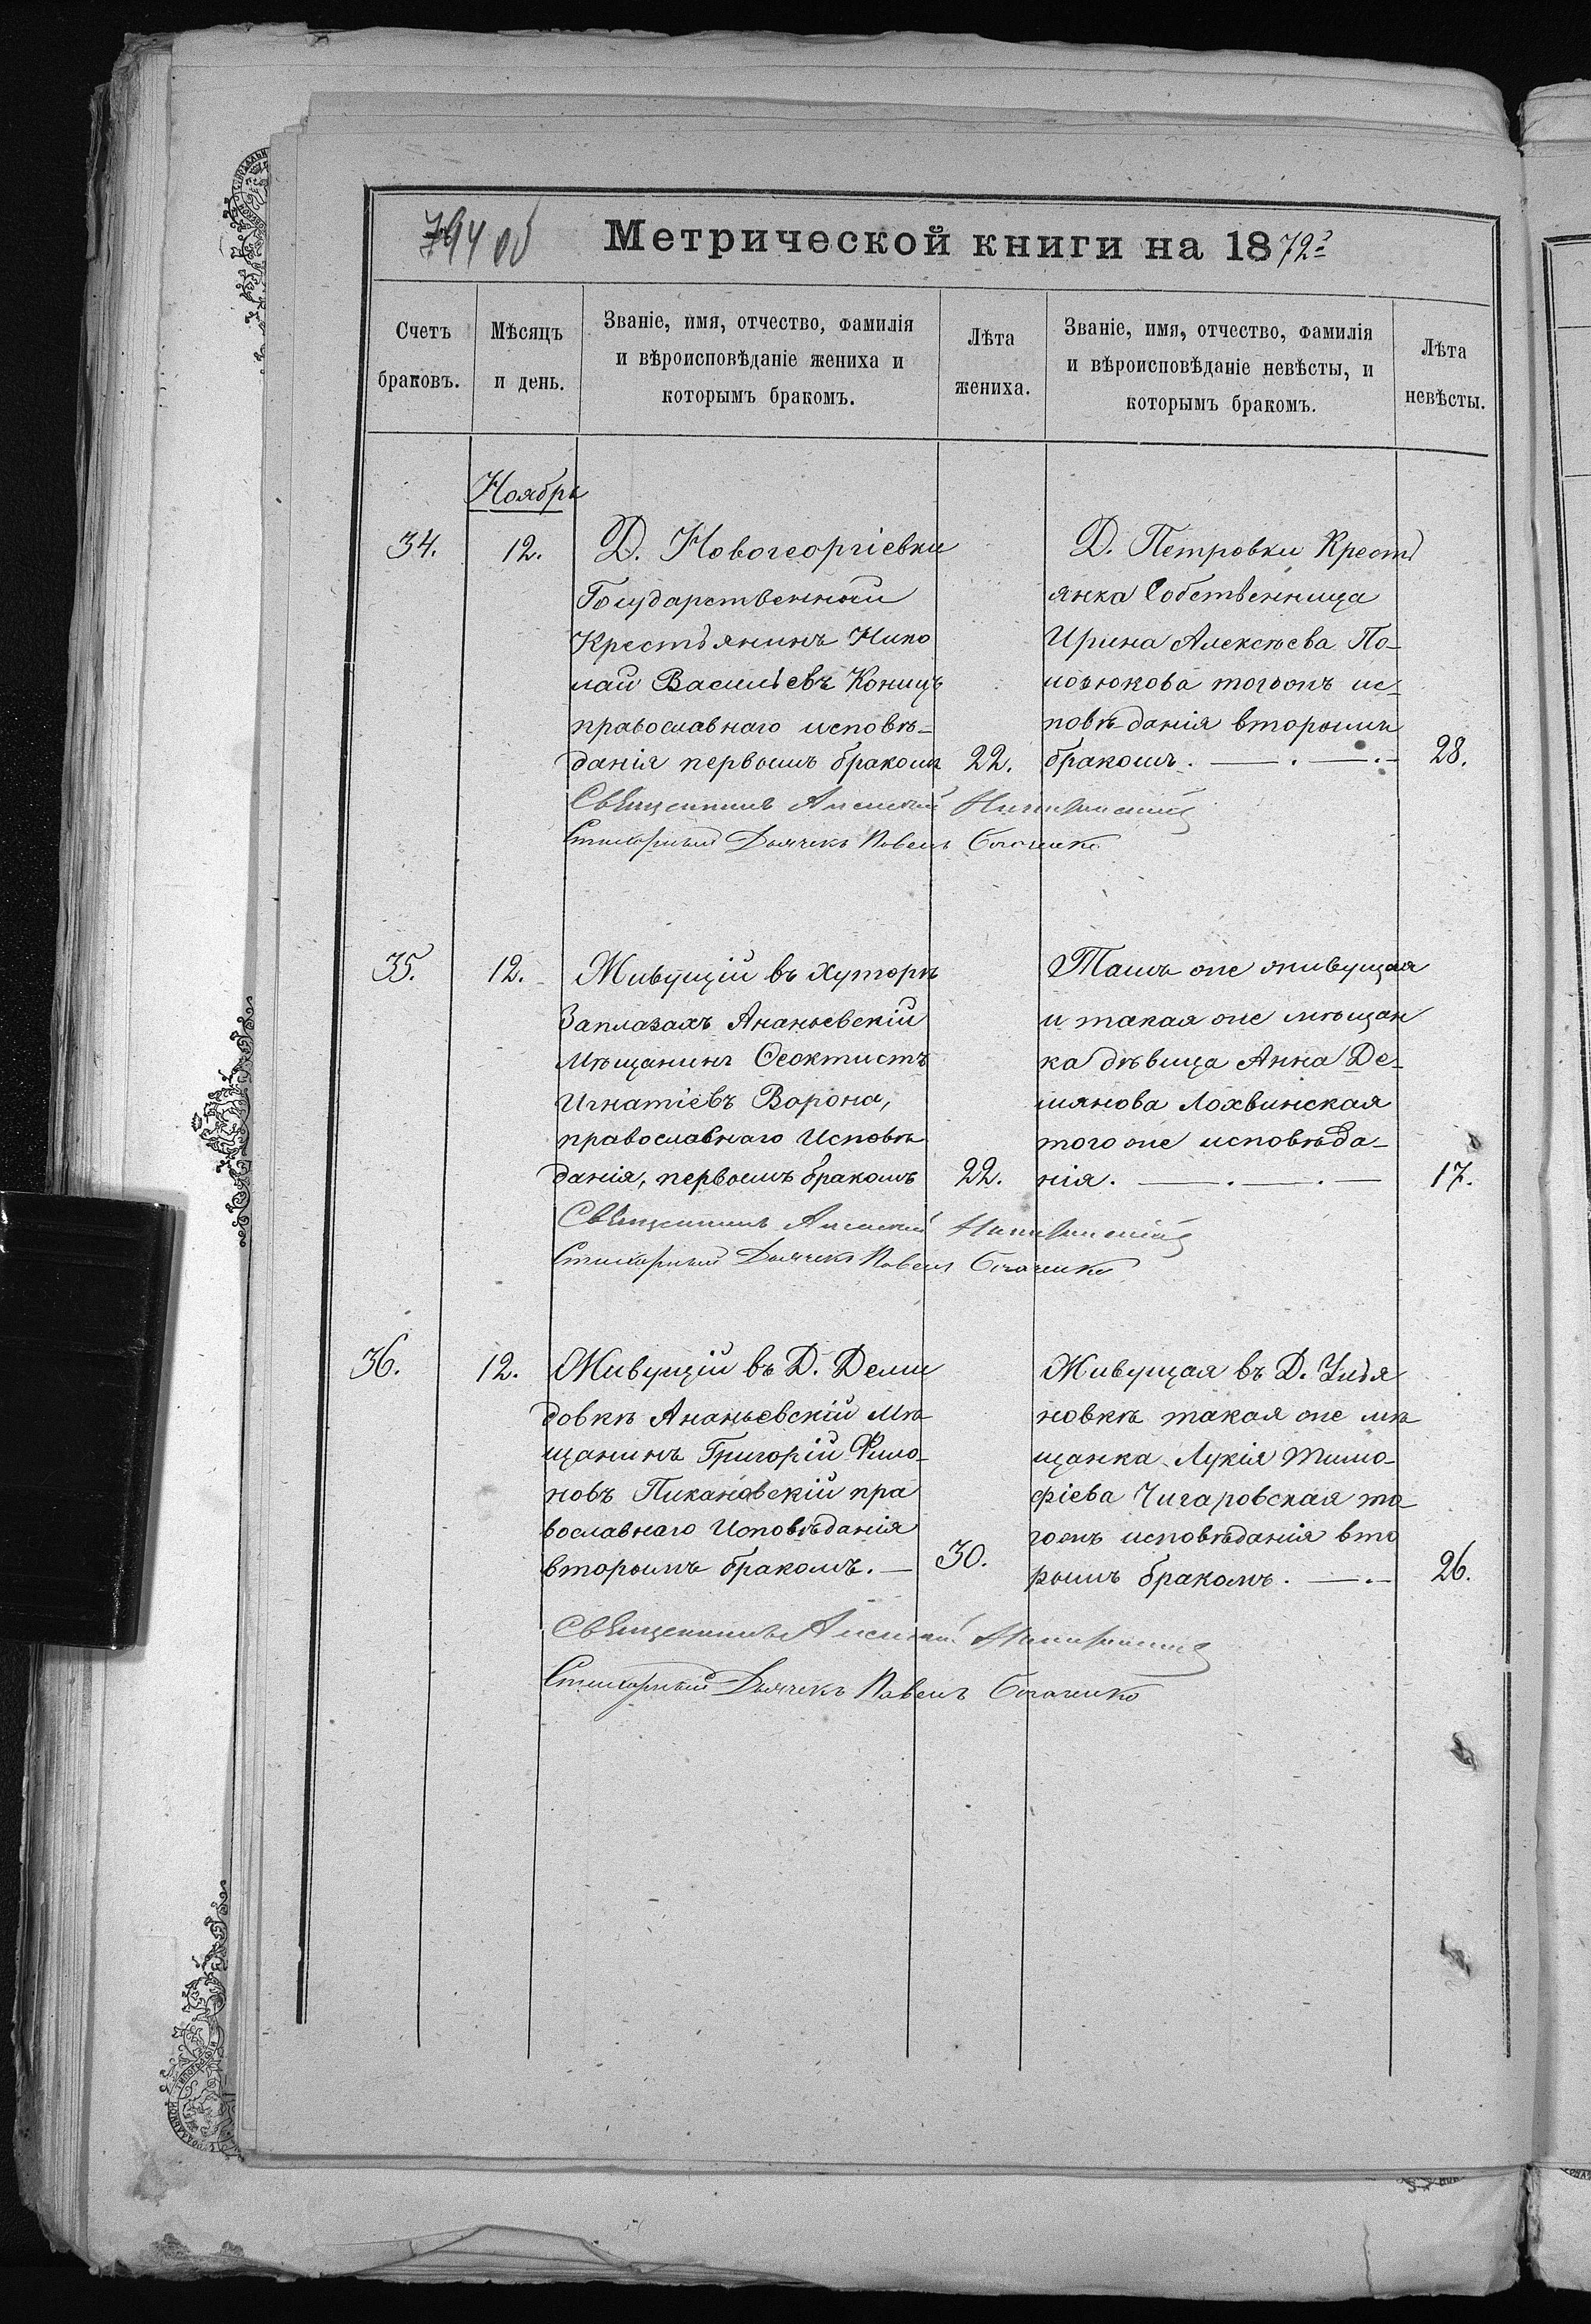 794 об
Метрической книги на 1872.
Счетъ браковъ.
Мѣсяцъ и день.
Званіе, имя, отчество, фамилія
и вѣроисповѣданіе жениха и
которымъ бракомъ.
Лѣта жениха.
Званіе, имя, отчество, фамилія
и вѣроисповѣданіе невѣсты, и
которымъ бракомъ.
Лѣта невѣсты.
Ноябрь
34.
12.
Д. Новогеоргіевки
Государственный
Крестьянинъ Нико
лай Васильевъ Коницъ
православнаго исповѣ-
данія первымъ бракомъ
22.
Д. Петровки Кресть
янка Собственница
Ирина Алексѣева По-
тогожъ ис-
повѣ-данія вторымъ
бракомъ. — . — . -
28.
Священникъ Алексей
Стихарный Дьячекъ Павелъ
35.
12.
Живущій въ Хуторѣ
Заплазахъ Ананьевскій
Мѣщанинъ Ѳеоктистъ
Игнатіевъ Ворона,
православнаго Исповѣ
данія, первымъ бракомъ
22.
Тамъ же живущая
и такая же мѣщан
ка дѣвица Анна Де-
мянова Лохвинская
того же исповѣда-
нія. — . — . —
17.
Священникъ Алексей
Стихарный Дьячекъ Павелъ
36.
12.
Живущій въ Д. Деми
довкѣ Ананьевскій Мѣ
щанинъ Григорій Филю-
новъ Пикановскій пра
вославнаго Исповѣданія
вторымъ бракомъ. —
30.
Живущая въ Д. Улья
новкѣ такая же мѣ
щанка Лукія Тимо-
фіева Чигаровская то
гожъ исповѣданія вто
рымъ бракомъ. — . -
26.
Священникъ Алексей
Стихарный Дьячекъ Павелъ